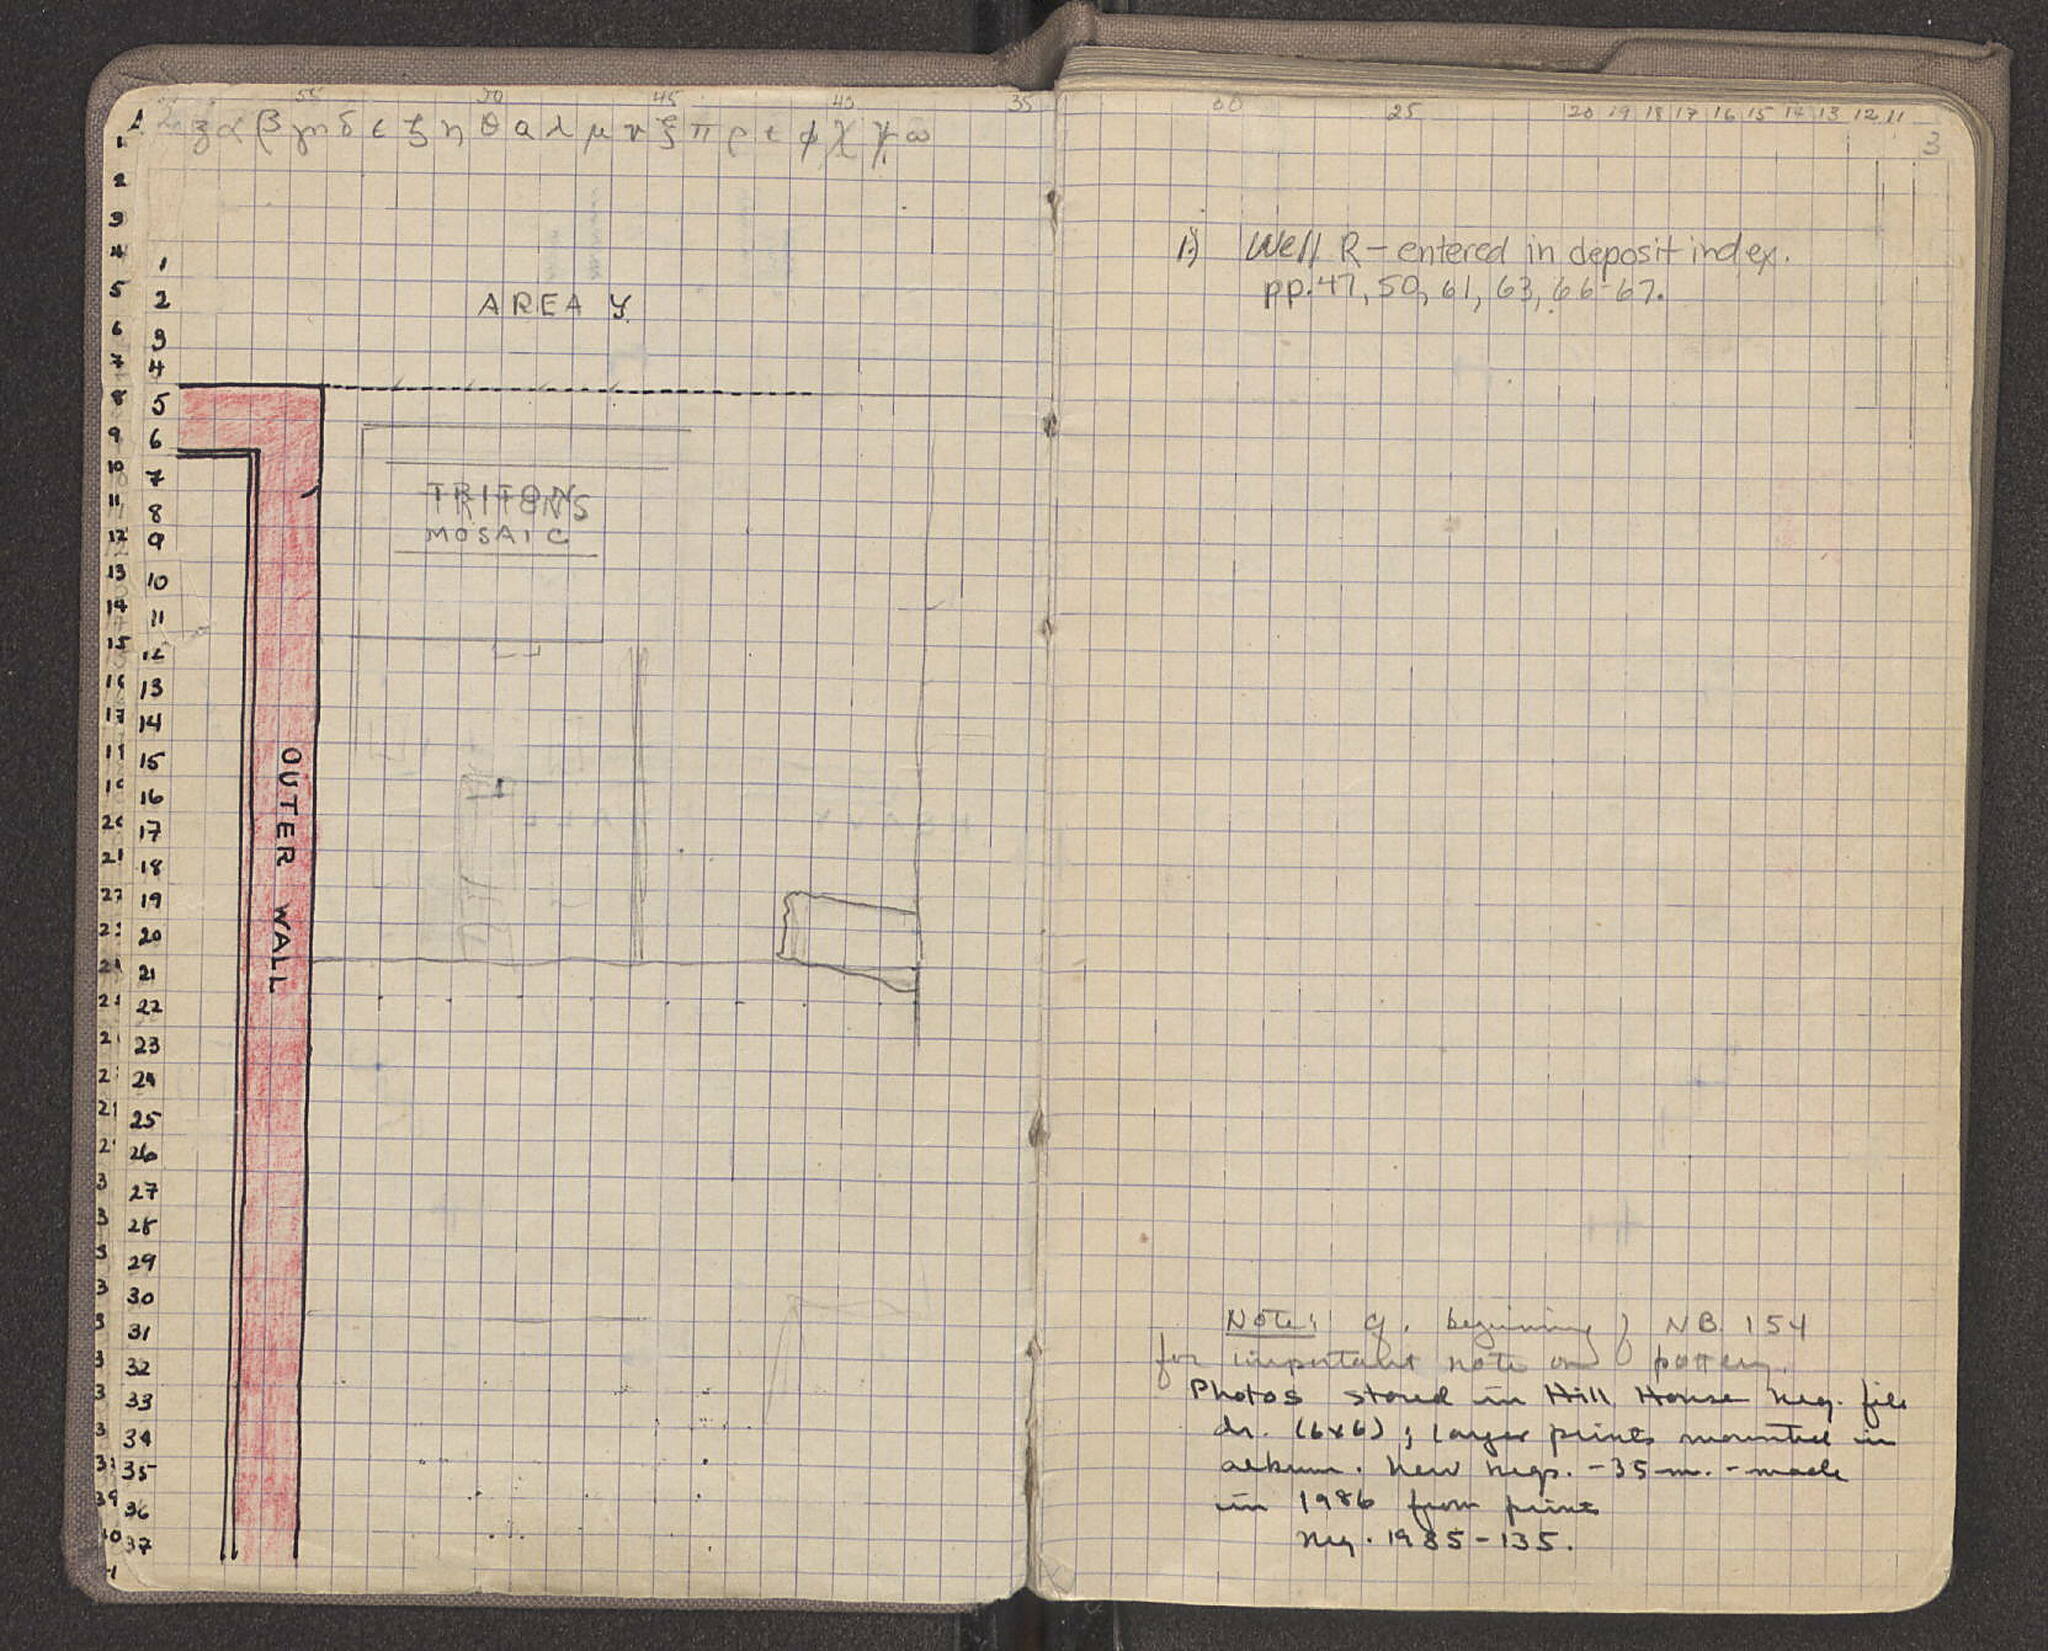 55 50 45 40 35
α β γ δ ε ζ η θ λ μ ν ξ π ρ τ φ χ ψ ω
1
2
3
4
5
6
7
8
9
10
11
12
13
14
15
1
2
3
4
5
6
7
8
9
10
11
12
13
14
15
16
17
18
19
20
21
22
23
24
25
26
27
28
29
30
31
32
33
34
35
36
37
AREA Y
TRITONS
MOSAIC
OUTER WALL
30 25 20 19 18 17 16 15 14 13 12 11
3
1.) Well R – entered in deposit index.
pp. 47, 50, 61, 63, 66-67.
Note: cf. beginning of NB. 154
for important note on pottery.
Photos stored in Hill House neg. file
dr. (6x6); larger prints mounted in
album. New negs. - 35 m. - made
in 1986 from prints
neg. 1985-135.